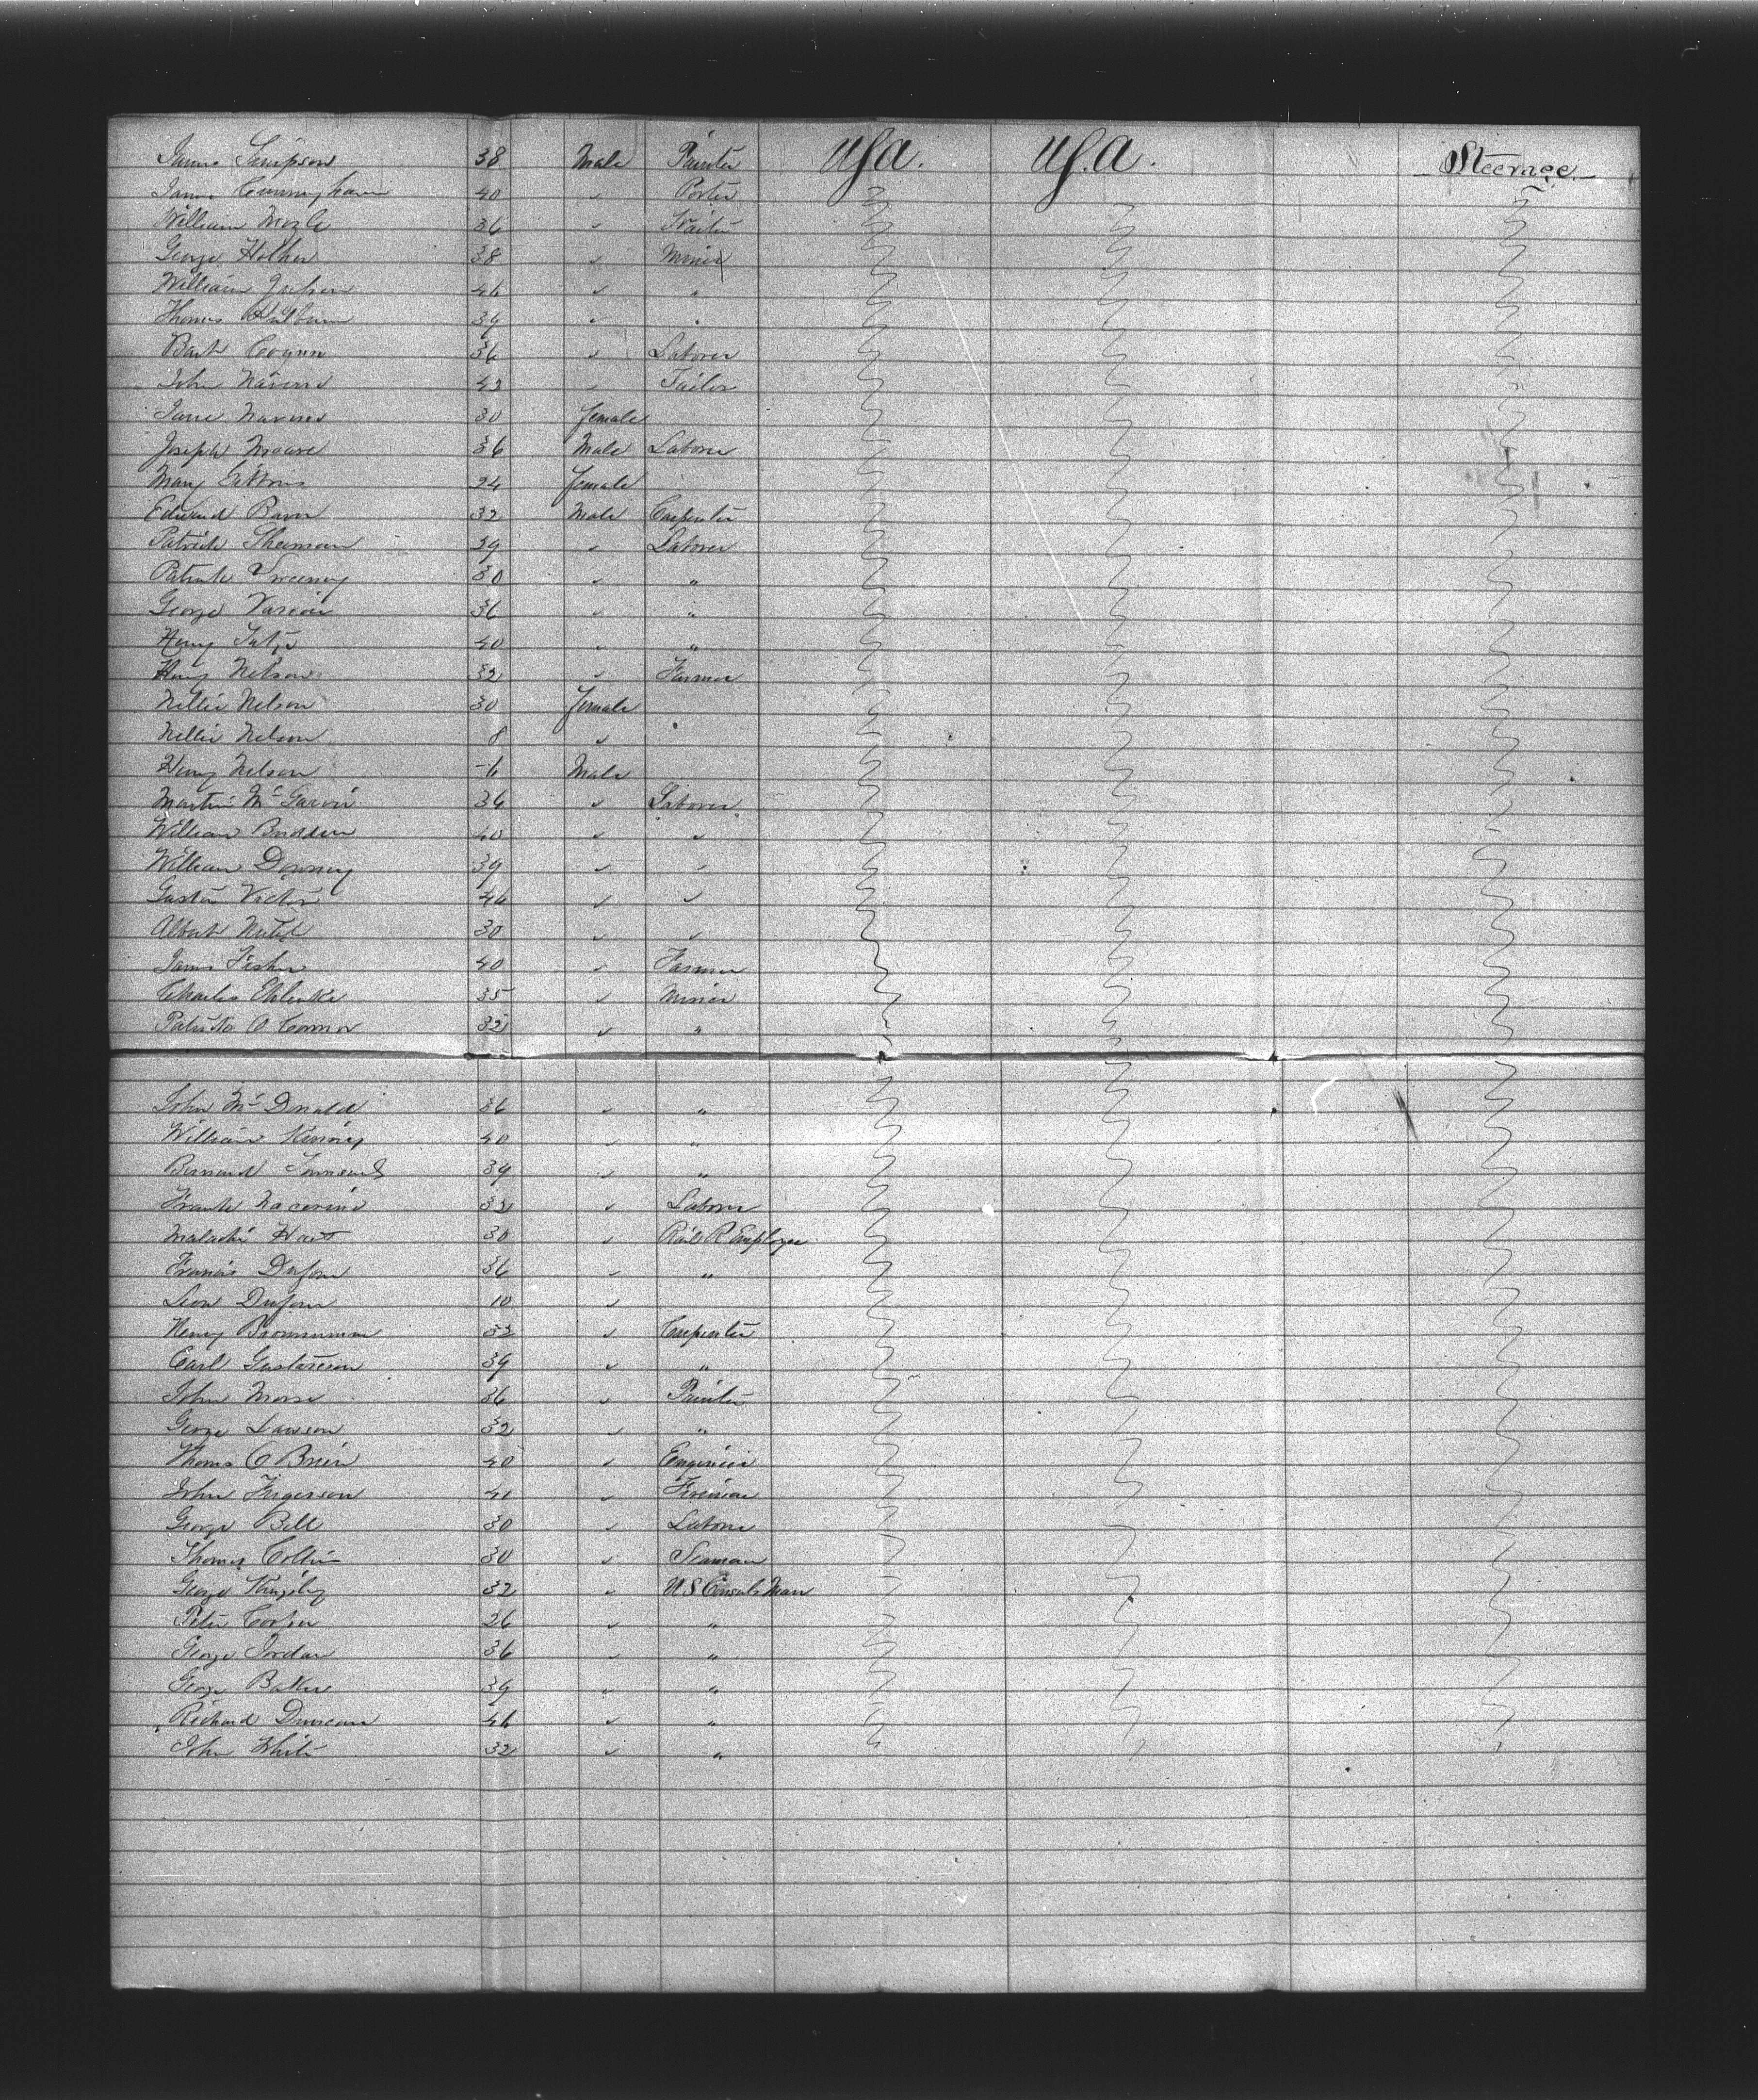 James Simpson 38 Male Painter USA. USA. Steerage
James Cunningham 40 " Porter
William 36 " Waiter
George 38 " Miner
William 46 " "
Thomas 39 " "
Bart 36 " Laborer
John 42 " Tailor
Jane 30 female
Joseph Moore 36 Male Laborer
Mary Gibbons 24 female
Edward 32 Male Carpenter
Patrick 39 " Laborer
Patrick Sweeney 30 " "
George 36 " "
Henry 40 " "
Henry Nelson 32 " Farmer
Nellie Nelson 30 female
Nellie Nelson 8 "
Henry Nelson 6 Male
Martin Mc 36 " Laborer
William 40 " "
William Downey 39 " "
Victor 46 " "
Albert 30 " "
James Fisher 40 " Farmer
Charles 35 " Miner
O Connor 32 " "
John Mc Donald 36 " "
William 40 " "
Bernard 39 " "
Frank 32 " Laborer
Malachi 30 " Rail R Employee
Francis Dufour 36 " "
Leon Dufour 10 "
Henry 32 " Carpenter
Carl 39 " "
John Morse 36 " Painter
George Lawson 32 " "
Thomas O Brien 40 " Engineer
John 41 " Fireman
George Bell 30 " Laborer
Thomas Collins 30 " Seaman
George Kingsley 32 " U S Consuls Man
Peter Cooper 26 " "
George Jordan 36 " "
George Baker 39 " "
Richard Duncan 46 " "
John White 32 " "